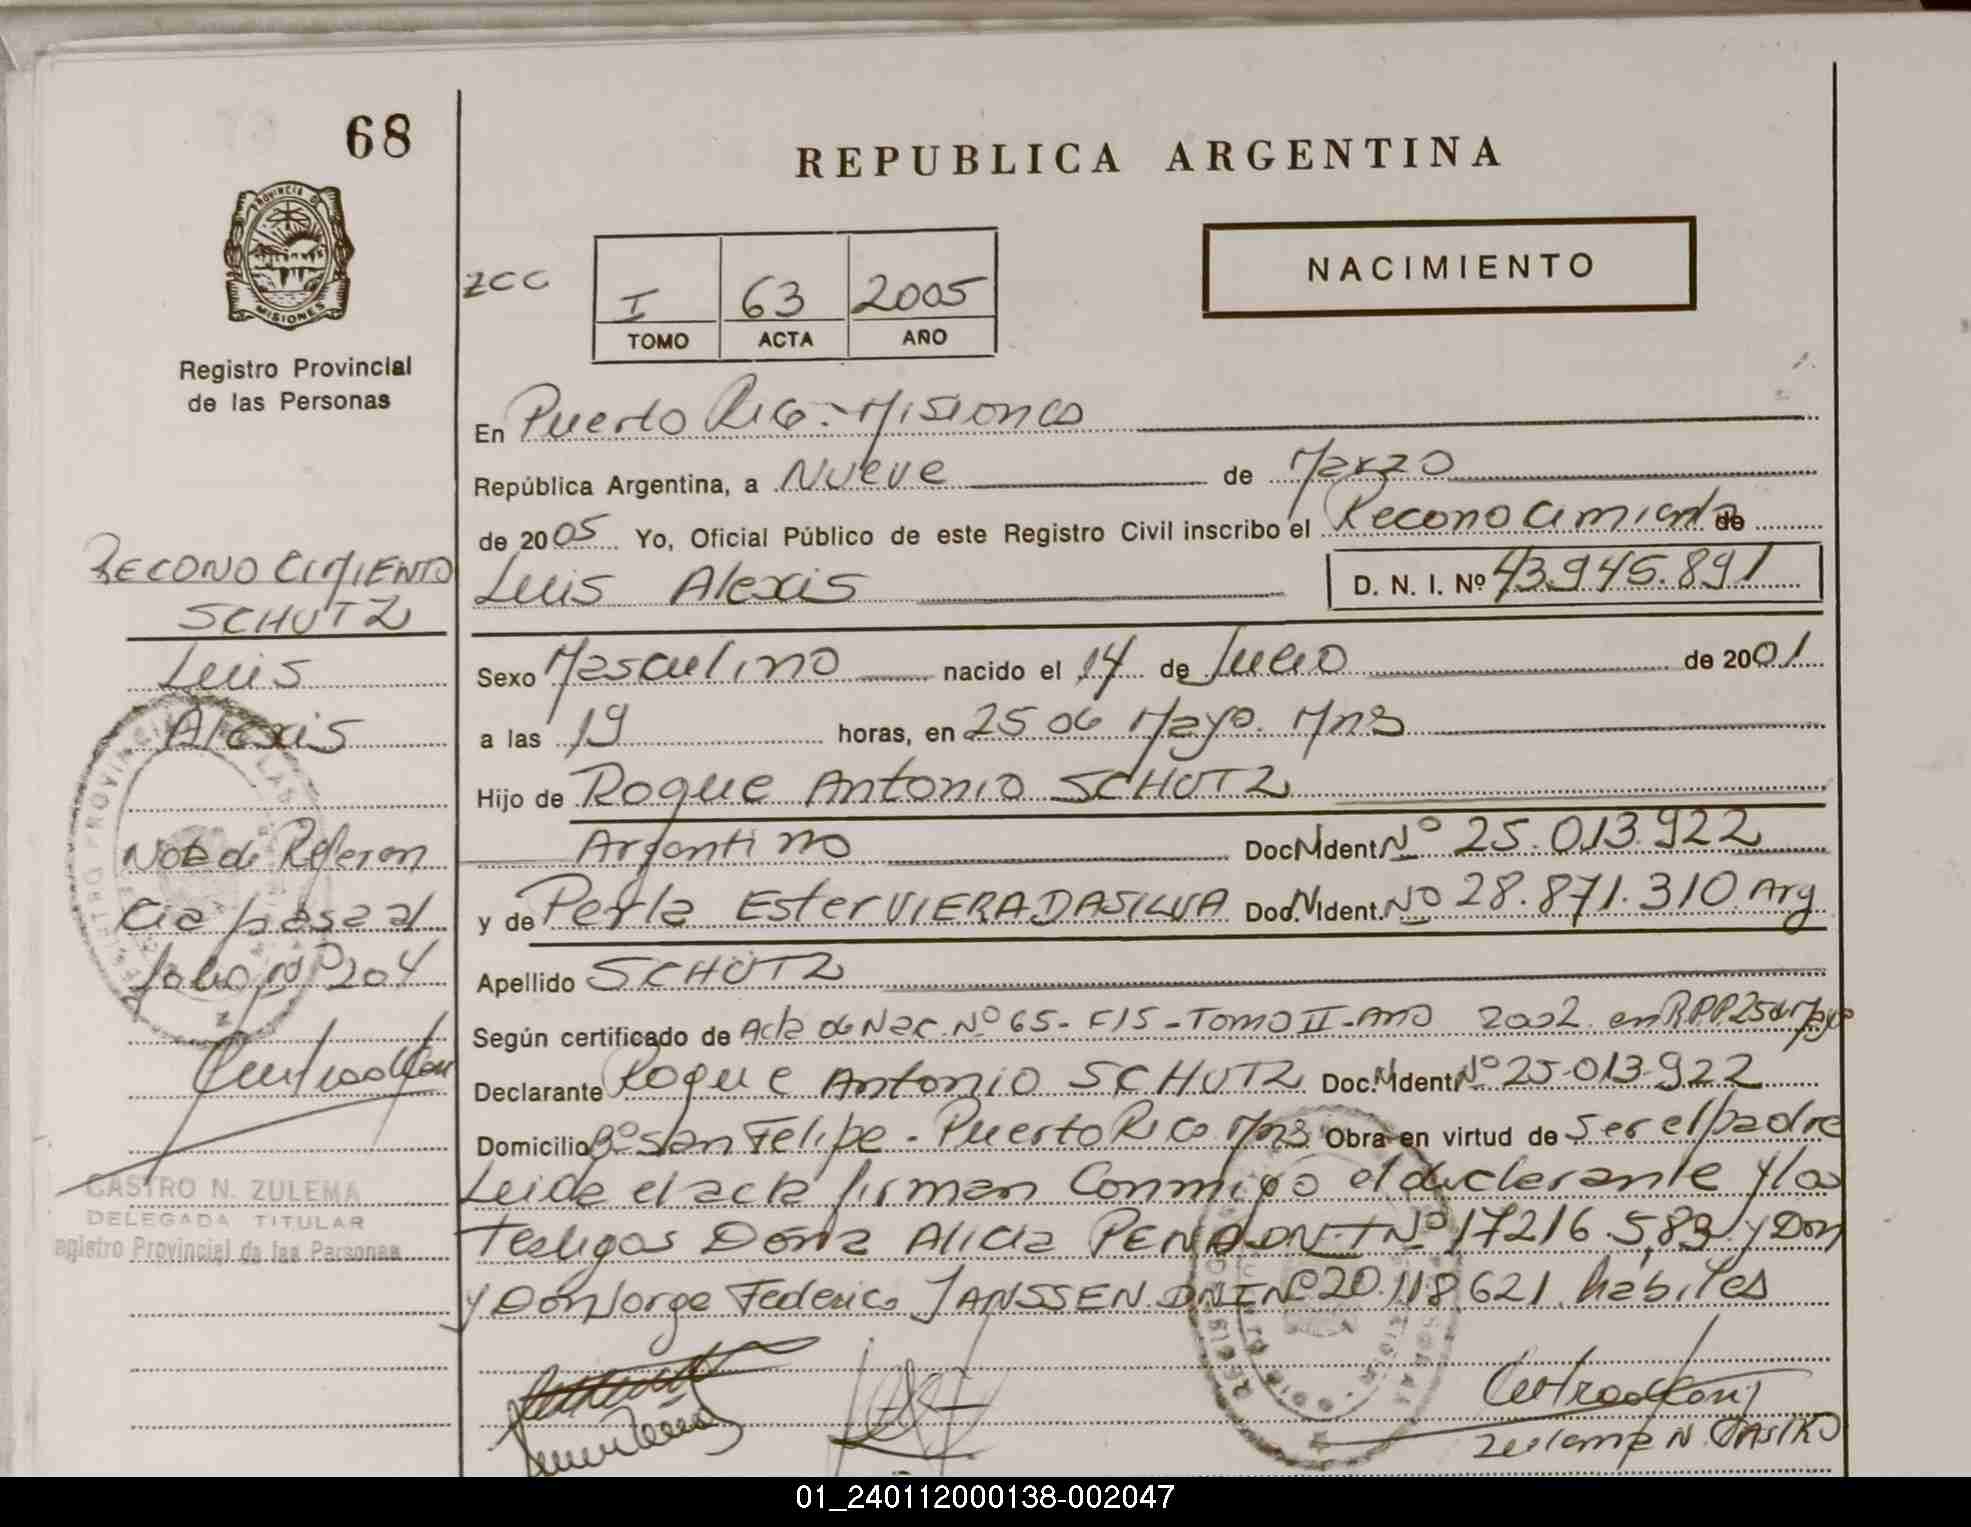 68
REPUBLICA ARGENTINA
PROVINCIA D
MISIONES
Registro Provincial
de las Personas
NACIMIENTO
ZCC
I 63 2005
TOMO ACTA AÑO
En Puerto Rico - Misiones
República Argentina, a Nueve de Marzo
de 2005 Yo, Oficial Público de este Registro Civil inscribo el Reconocimiento de
Luis Alexis D. N. I. Nº 43.945.891
Sexo Masculino nacido el 14 de Julio de 2001
a las 19 horas, en 25 de Mayo. Mns
Hijo de Roque Antonio SCHUTZ
Argentino Doc. N Ident. Nº 25.013.922
y de Perla Ester VIERA DASILVA Doc. N Ident. Nº 28.871.310 Arg
Apellido SCHUTZ
Según certificado de Acta de Nac. Nº 65 - F15 - Tomo II - Año 2002 en R.P.P. 25 de Mayo
Declarante Roque Antonio SCHUTZ Doc. N Ident. Nº 25.013.922
Domicilio Bº San Felipe - Puerto Rico Mns Obra en virtud de ser el padre
Leida el acta firman Conmigo el declarante y los
Testigos Doña Alicia PENA DNI Nº 17216.583 y Don
y Don Jorge Federico JANSSEN DNI Nº 20.118.621 hábiles
Zulema N. CASTRO
RECONOCIMIENTO
SCHUTZ
Luis
Alexis
Nota de Referen
cia pasa al
folio Nº 204
CASTRO N. ZULEMA
DELEGADA TITULAR
egistro Provincial de las Personas
01_240112000138-002047